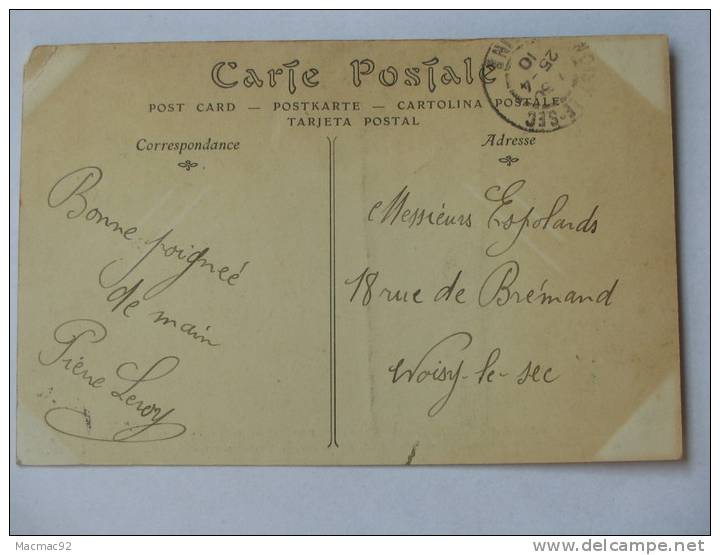 Carte Postale
POST CARD — POSTKARTE — CARTOLINA POSTALE
TARJETA POSTAL
Correspondance
Bonne poigneé
de main
Piere Leroy
Adresse
Messiéurs Espolards
18 rue de Brémand
Noisy-le-sec
E-SEC
25-4
10
Macmac92
http://www.delcampe.net